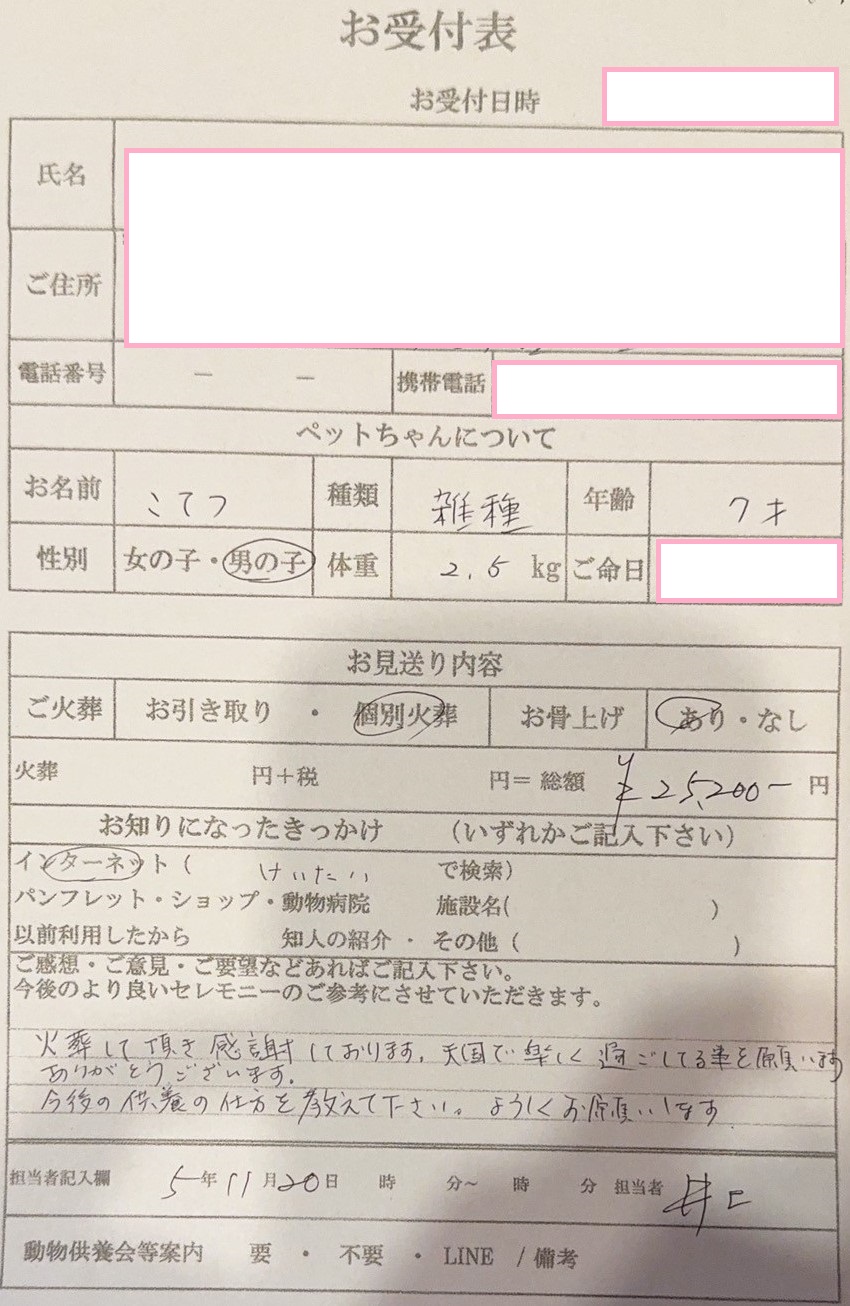 お受付表
お受付日時
氏名
ご住所
電話番号 － － 携帯電話
ペットちゃんについて
お名前 こてつ 種類 雑種 年齢 7才
性別 女の子・男の子 体重 2.5 kg ご命日
お見送り内容
ご火葬 お引き取り ・ 個別火葬 お骨上げ あり・なし
火葬 円＋税 円＝ 総額 ¥25,200- 円
お知りになったきっかけ （いずれかご記入下さい）
インターネット（ けいたい で検索）
パンフレット・ショップ・動物病院 施設名( )
以前利用したから 知人の紹介 ・ その他（ ）
ご感想・ご意見・ご要望などあればご記入下さい。
今後のより良いセレモニーのご参考にさせていただきます。
火葬して頂き感謝しております。天国で楽しく過ごしてる事を願います
ありがとうございます。
今後の供養の仕方を教えて下さい。よろしくお願いします
担当者記入欄 5年11月20日 時 分～ 時 分 担当者 井口
動物供養会等案内 要 ・ 不要 ・ LINE / 備考